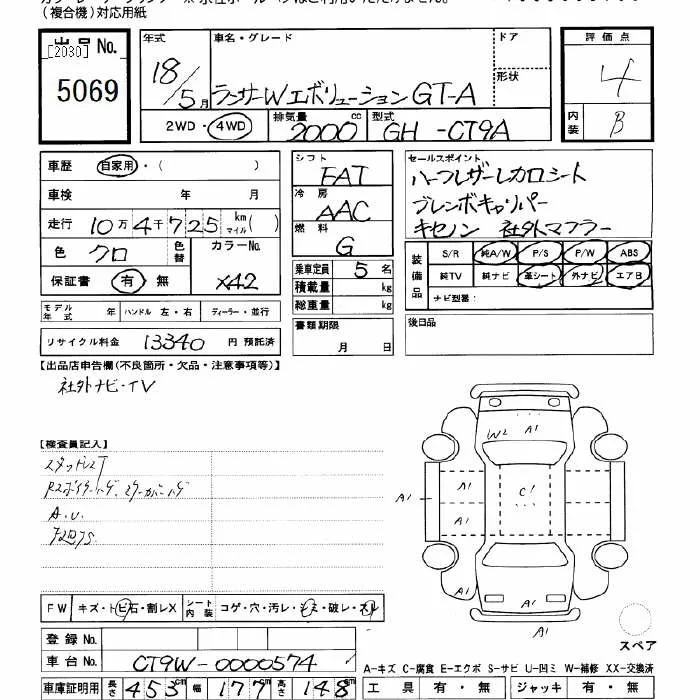 (複合機)対応用紙
出品No. [2030]
5069
年式 車名・グレード ドア 評価点
18/5月 ランサーWエボリューション GT-A 形状 4
2WD・4WD 排気量 2000 cc 型式 GH-CT9A 内装 B
車歴 自家用・( )
車検 年 月
走行 10万4千725 km マイル( )
色 クロ 色替 カラーNo. X42
保証書 有・無
シフト FAT
冷房 AAC
燃料 G
乗車定員 5名
積載量 kg
総重量 kg
セールスポイント
ハーフレザーレカロシート
ブレンボキャリパー
キセノン 社外マフラー
装備品 S/R 純A/W P/S P/W ABS
純TV 純ナビ 革シート 外ナビ エアB
ナビ型番:
モデル年式 年 ハンドル 左・右 ディーラー・並行
書類期限 月 日
後日品
リサイクル料金 13340 円 預託済
【出品店申告欄(不良箇所・欠品・注意事項等)】
社外ナビ・TV
【検査員記入】
スタッドレスT
A.U.
W2 A1
A1
A1 C1 A1
A1
A1
A1
FW キズ・トビ石・割レX シート内装 コゲ・穴・汚レ・シミ・破レ・スレ
スペア
登録No.
車台No. CT9W-0000574
A-キズ C-腐食 E-エクボ S-サビ U-凹ミ W-補修 XX-交換済
車庫証明用 長さ 453cm 幅 177cm 高さ 148cm
工具 有・無 ジャッキ 有・無